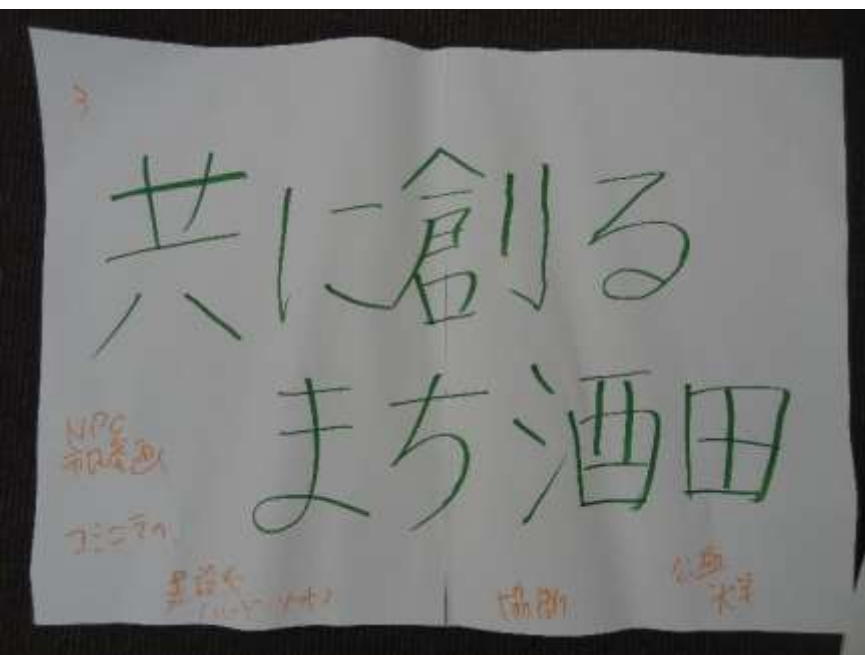 3
共に創る
まち酒田
NPO
市民参画
コミニティ
協働
公益
大学